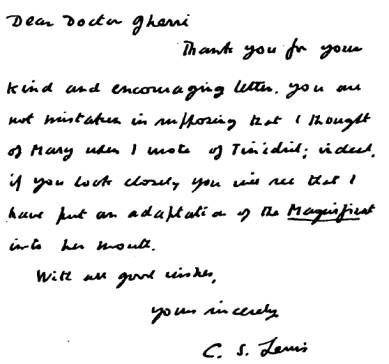 Dear Doctor Gherri
Thank you for your
kind and encouraging letter. You are
not mistaken in supposing that I thought
of Mary when I wrote of Tinidril; indeed,
if you look closely you will see that I
have put an adaptation of the Magnificat
into her mouth.
With all good wishes,
yours sincerely
C. S. Lewis